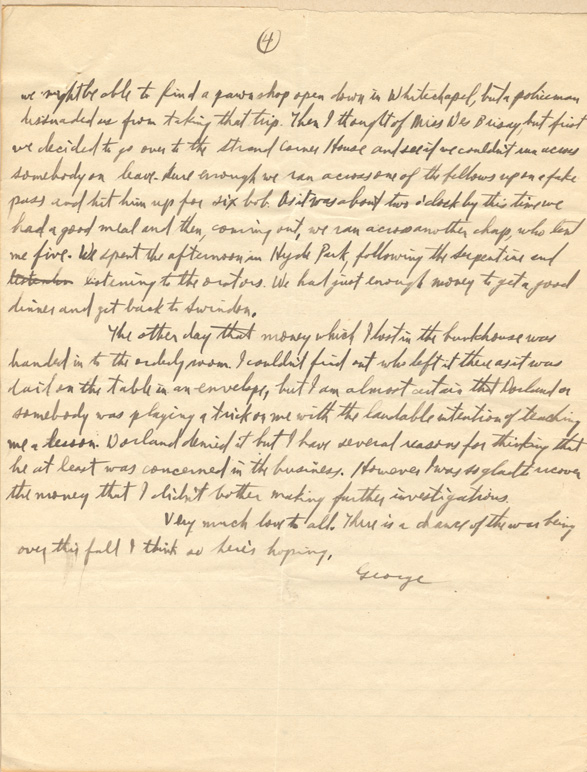 4
we might be able to find a pawnshop open down in Whitechapel, but a policeman
disuaded us from taking that trip. Then I thought of Miss Des Brisay, but first
we decided to go over to the Strand Corner House and see if we couldn't run across
somebody on leave. Sure enough we ran across one of the fellows up on a fake
pass and hit him up for six bob. As it was about two o'clock by this time we
had a good meal and then, coming out, we ran across another chap, who lent
me five. We spent the afternoon in Hyde Park, following the serpentine and
listening to the orators. We had just enough money to get a good
dinner and get back to Swindon.
The other day that money which I lost in the bunkhouse was
handed in to the orderly room. I couldn't find out who left it there as it was
laid on the table in an envelope, but I am almost certain that Dorland or
somebody was playing a trick on me with the laudable intention of teaching
me a lesson. Dorland denied it but I have several reasons for thinking that
he at least was concerned in the business. However I was so glad to recover
the money that I didn't bother making further investigations.
Very much love to all. There is a chance of the war being
over this fall I think so here's hoping.
George